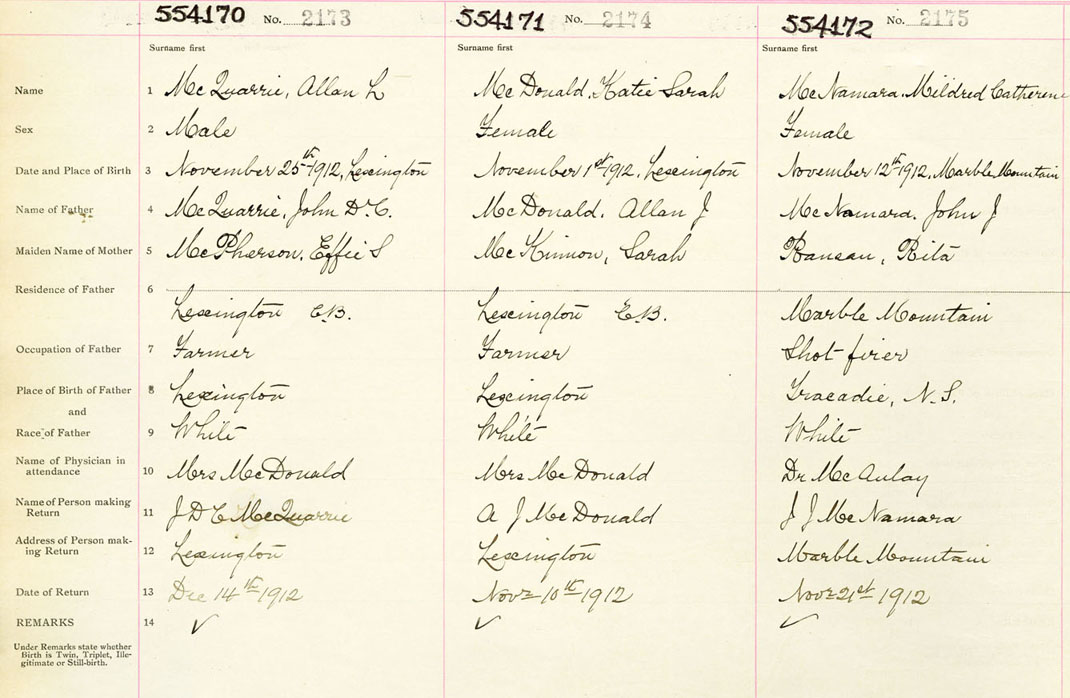 554170 No. 2173 554171 No. 2174 554172 No. 2175
Surname first Surname first Surname first
Name 1 McQuarrie, Allan L McDonald, Katie Sarah McNamara, Mildred Catherene
Sex 2 Male Female Female
Date and Place of Birth 3 November 25th 1912, Lexington November 1st 1912, Lexington November 12th 1912, Marble Mountain
Name of Father 4 McQuarrie, John D. C. McDonald, Allan J McNamara, John J
Maiden Name of Mother 5 McPherson, Effie S McKinnon, Sarah Rita
Residence of Father 6
Lexington C.B. Lexington C.B. Marble Mountain
Occupation of Father 7 Farmer Farmer Shot firer
Place of Birth of Father 8 Lexington Lexington Tracadie, N.S.
and
Race of Father 9 White White White
Name of Physician in
attendance 10 Mrs McDonald Mrs McDonald Dr McAulay
Name of Person making
Return 11 J D C McQuarrie A J McDonald J J McNamara
Address of Person mak-
ing Return 12 Lexington Lexington Marble Mountain
Date of Return 13 Dec 14th 1912 Novr 10th 1912 Novr 21st 1912
REMARKS 14 ✓ ✓ ✓
Under Remarks state whether
Birth is Twin, Triplet, Ille-
gitimate or Still-birth.